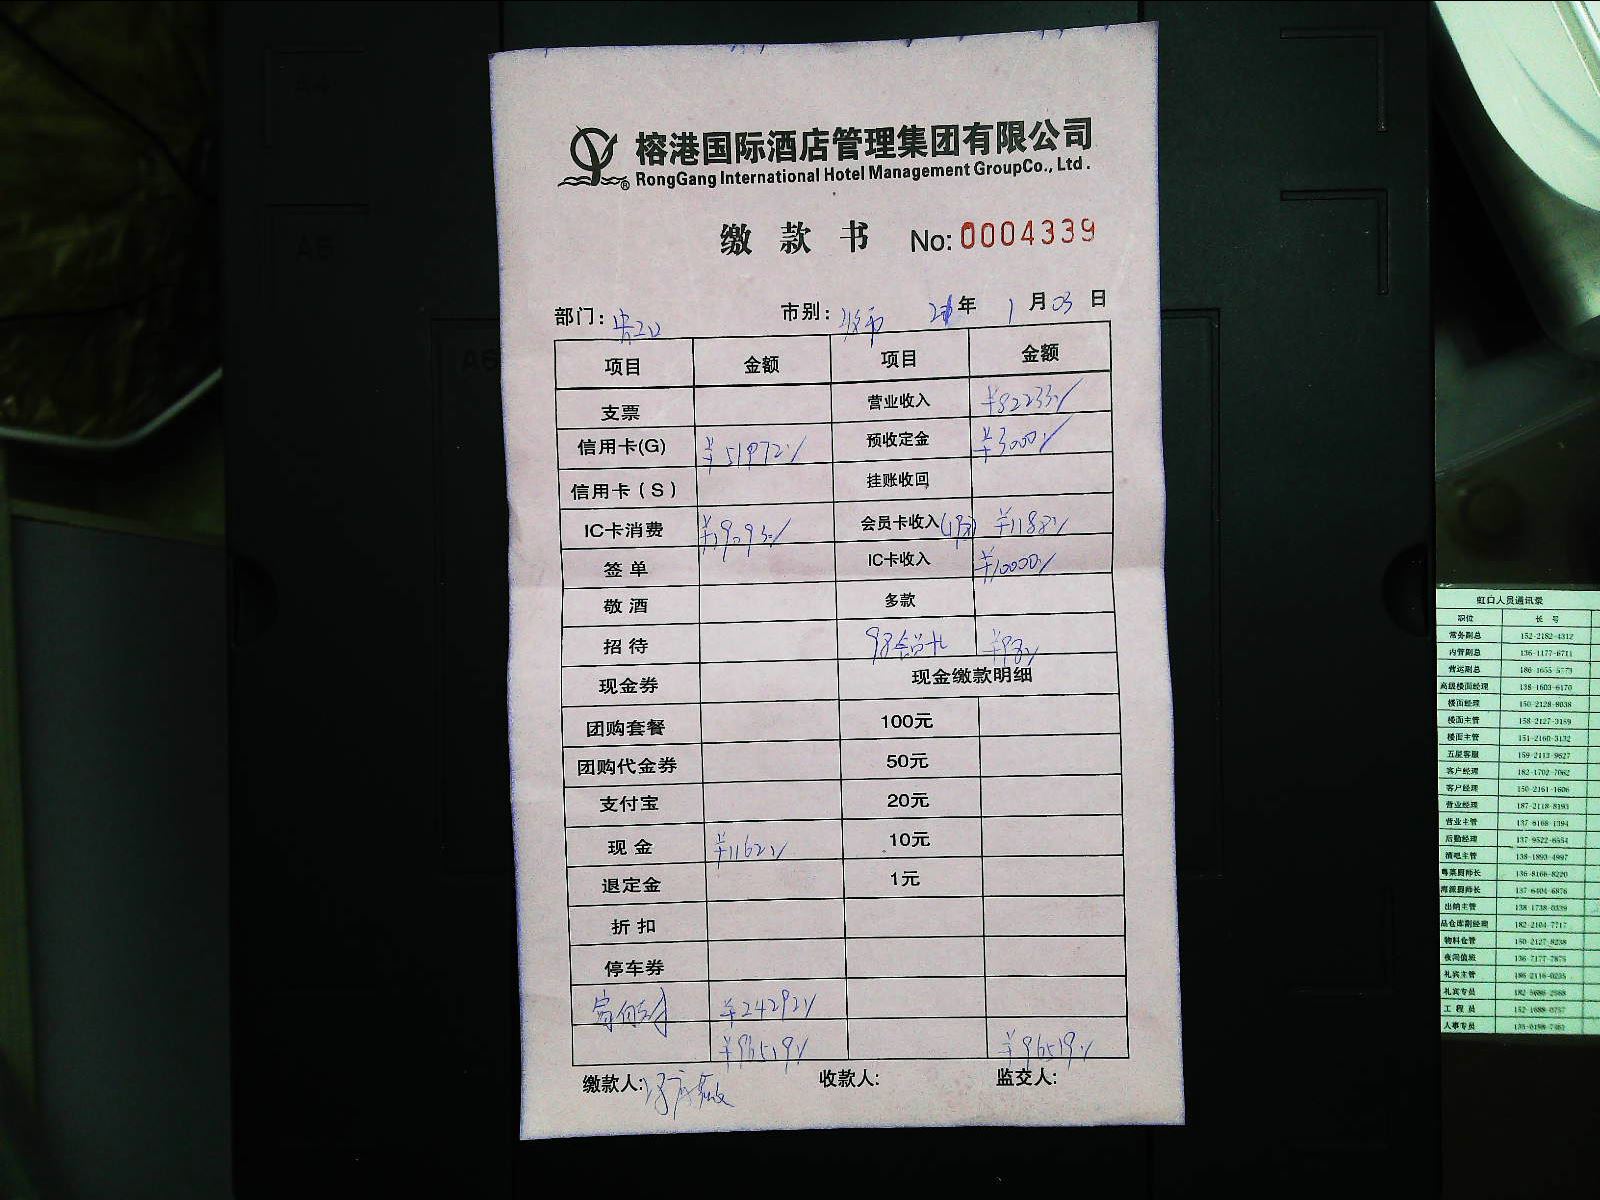 榕港国际酒店管理集团有限公司
RongGang International Hotel Management GroupCo., Ltd.
缴款书 No: 0004339
部门: 市别: 年 1 月 03 日
项目 金额 项目 金额
支票 营业收入 ¥82233
信用卡(G) ¥51972 预收定金 ¥3000
信用卡(S) 挂账收回
IC卡消费 ¥19093 会员卡收入 ¥1188
签单 IC卡收入 ¥10000
敬酒 多款
招待 98会员卡 ¥98
现金券 现金缴款明细
团购套餐 100元
团购代金券 50元
支付宝 20元
现金 ¥1162 10元
退定金 1元
折扣
停车券
¥24292
¥96519 ¥96519
缴款人: 收款人: 监交人:
A5
A6
虹口人员通讯录
职位 长 号
常务副总 152-2182-4312
内管副总 136-1177-6711
营运副总
高级楼面经理 138-1603-6170
楼面经理 150-2128-8038
楼面主管 158-2127-3159
楼面主管 151-2160-3132
五星客服 159-2113-9627
客户经理 182-1702-7062
客户经理 150-2161-1606
营业经理 187-2118-8193
营业主管 137-6168-1394
后勤经理 137-9522-6554
酒吧主管 138-1893-4997
粤菜厨师长 136-8166-8220
海派厨师长 137-6404-6876
出纳主管 138-1738-0339
品仓库副经理 182-2104-7717
物料仓管 150-2127-8238
夜间值班 136-7177-7875
礼宾主管
礼宾专员
工程员
人事专员